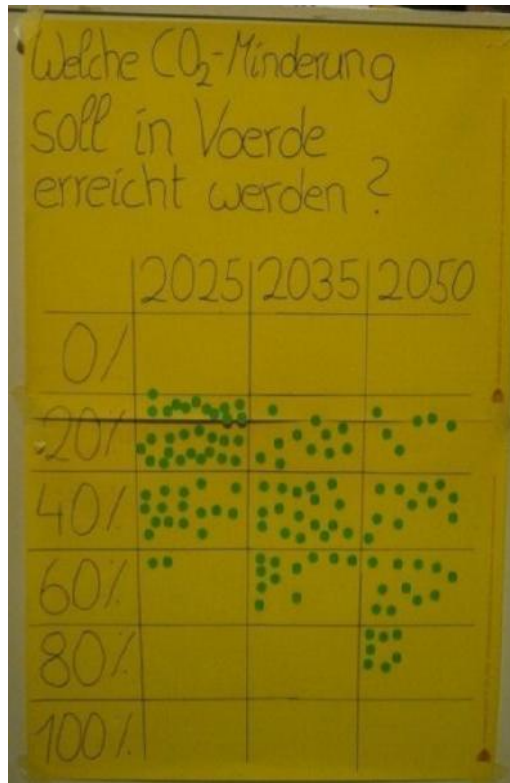 Welche CO₂-Minderung
soll in Voerde
erreicht werden?
2025 2035 2050
0%
20%
40%
60%
80%
100%